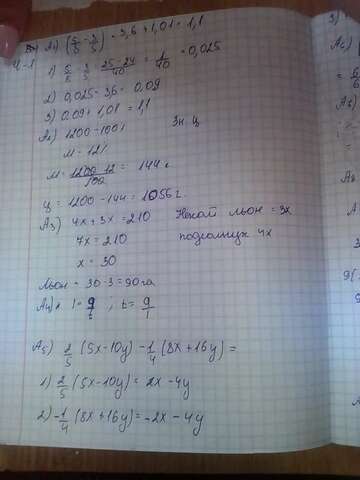 А1) (5/8 - 3/5) · 3,6 + 1,01 = 1,1
1) 5/8 - 3/5 = 25-24/40 = 1/40 = 0,025
2) 0,025 · 3,6 = 0,09
3) 0,09 + 1,01 = 1,1
А2) 1200 - 100%
м - 12%
м = 1200·12/100 = 144 г
ц = 1200 - 144 = 1056 г.
А3) 4x + 3x = 210 Нехай льон = 3x
7x = 210 подсолнух 4x
x = 30
Льон = 30 · 3 = 90 га
А5) 2/5 (5x-10y) - 1/4 (8x+16y) =
1) 2/5 (5x-10y) = 2x - 4y
2) -1/4 (8x+16y) = -2x - 4y